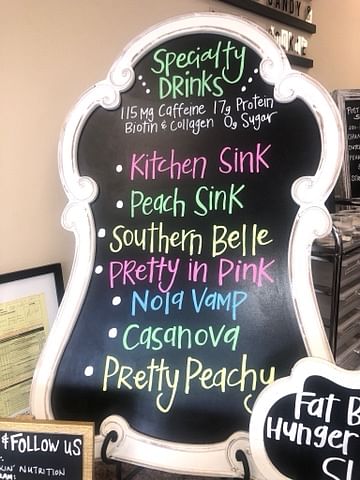 Specialty
DRINKS
115 Mg Caffeine 17g Protein
Biotin & Collagen 0g Sugar
• Kitchen Sink
• Peach Sink
• Southern Belle
• Pretty in Pink
• Nola Vamp
• Casanova
• Pretty Peachy
Fat B
Hunger
& Follow us
KIN' NUTRITION